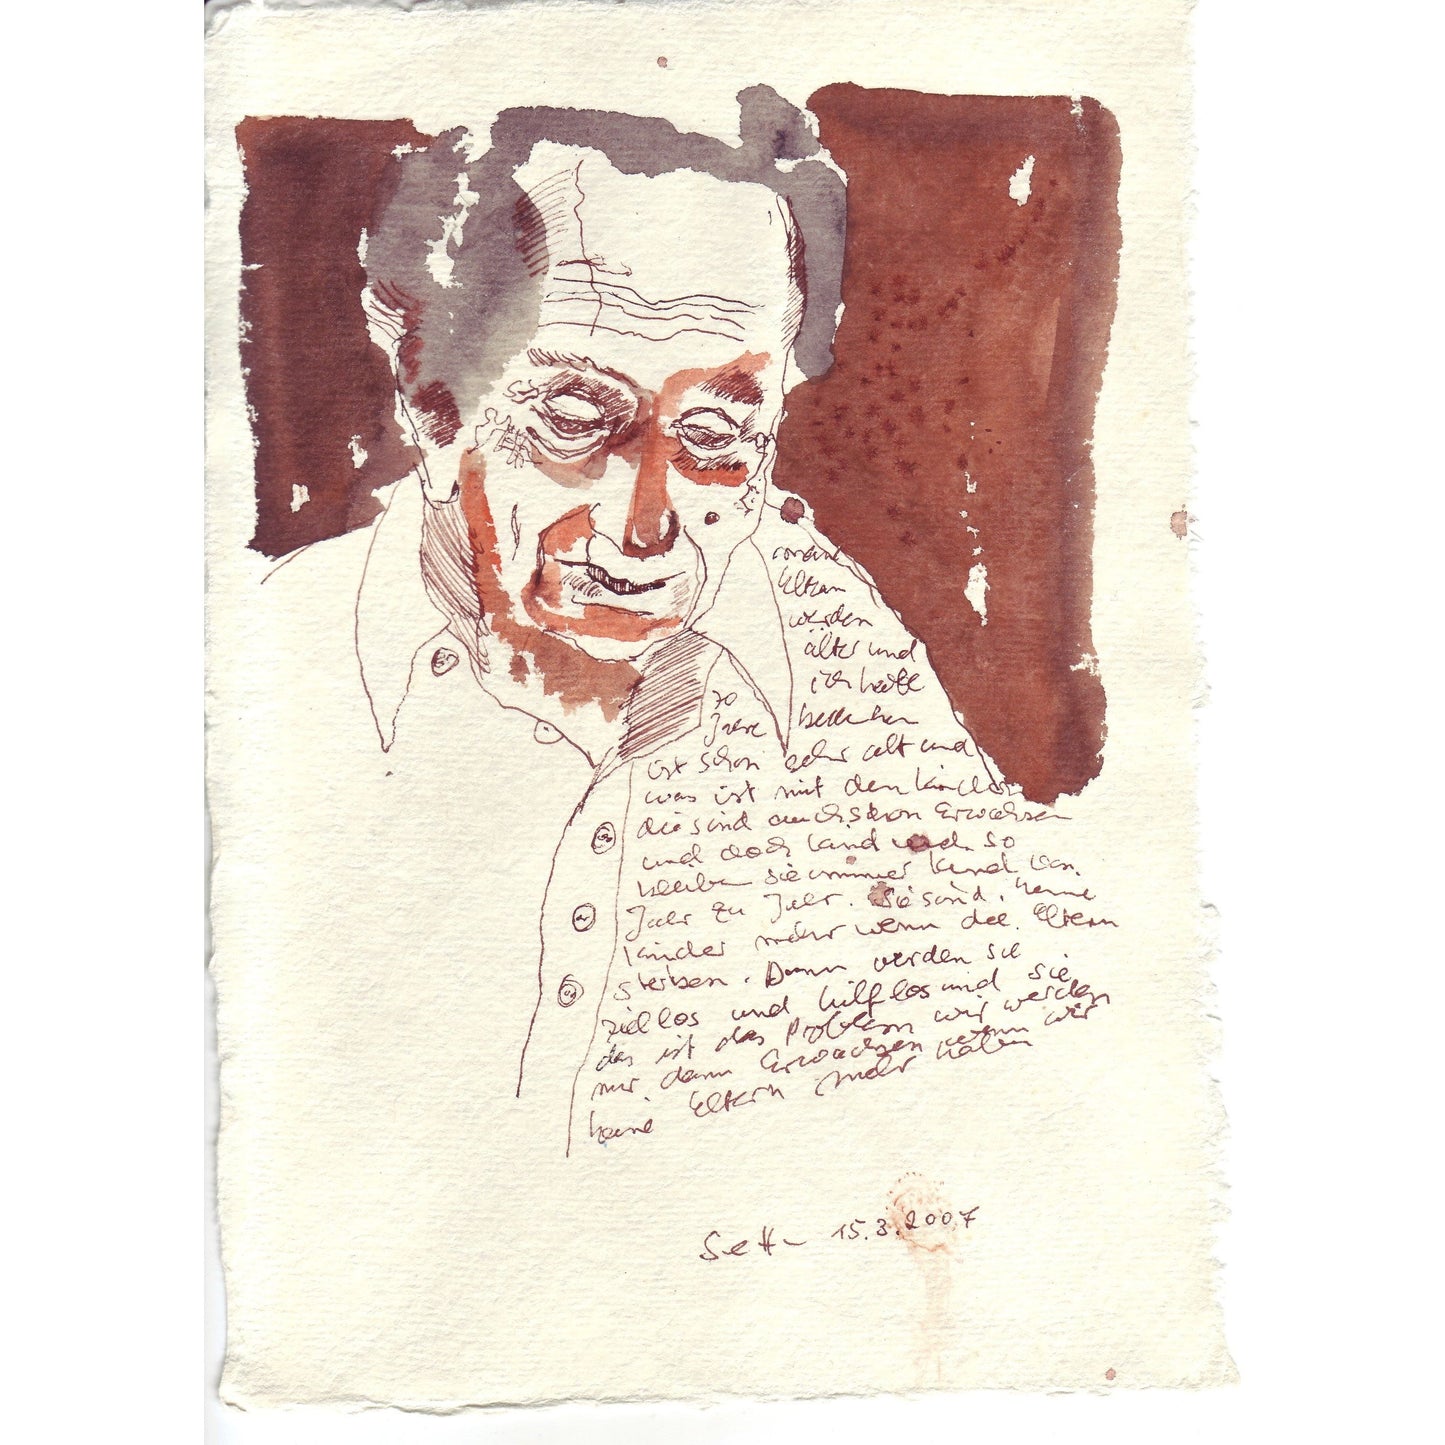 meine
Eltern
werden
älter und
ich habe
70
Jahre
ist schon sehr alt und
was ist mit den Kinder
die sind auch schon Erwachsen
und doch Kind und so
bleiben sie immer Kind von
Jahr zu Jahr. Sie sind keine
Kinder mehr wenn die Eltern
sterben. Dann werden sie
ziellos und hilflos und sie
das ist das Problem wir werden
nur dann Erwachsen wenn wir
keine Eltern mehr haben
15.3.2007